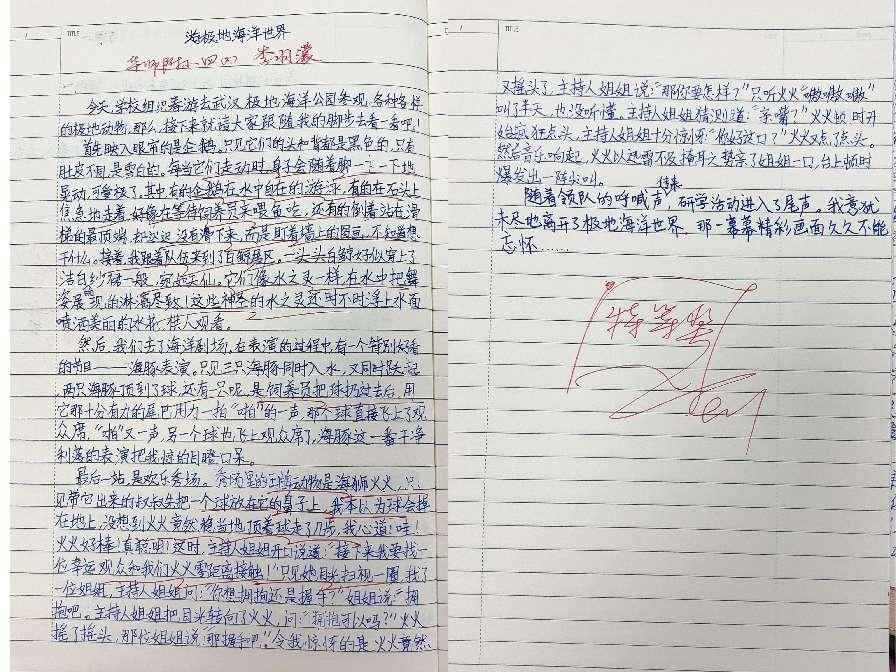 TITLE
游极地海洋世界
华师附小 四(六) 李羽濛
今天,学校组织春游去武汉极地海洋公园参观各种各样
的极地动物,那么,接下来就请大家跟随我的脚步去看一看吧!
首先映入眼帘的是企鹅。只见它们的头和背都是黑色的,只有
肚皮不同,是雪白的。每当它们走动时,身子会随着脚一上一下地
晃动,可爱极了。其中有的企鹅在水中自在的游泳,有的在石头上
焦急地走着,好像在等待饲养员来喂鱼吃,还有的倒着站在滑
梯的最顶端,却迟迟没有滑下来,而是盯着墙上的图画,不知道想
干什么。接着,我跟着队伍来到了白鲸展区。一头头白鲸好似穿上了
洁白纱裙一般,宛如天仙。它们像水之灵一样,在水中把舞
姿展现的淋漓尽致!这些神圣的水之灵还时不时浮上水面
喷洒美丽的水花,禁人观看。
然后,我们去了海洋剧场。在表演的过程中,有一个特别好看
的节目——海豚表演。只见三只海豚同时入水,又同时跃起,
两只海豚顶到了球,还有一只呢,是饲养员把球扔过去后,用
它那十分有力的尾巴用力一拍“啪”的一声,那个球直接飞上了观
众席,“啪”又一声,另一个球也飞上观众席了,海豚这一番干净
利落的表演把我惊的目瞪口呆。
最后一站,是欢乐秀场。秀场里的王牌动物是海狮火火,只
见带它出来的叔叔先把一个球放在它的鼻子上,我本以为球会掉
在地上,没想到火火竟然稳当地顶着球走了几步,我心道:哇!
火火好棒!真聪明!这时,主持人姐姐开口说道:“接下来我要找一
位幸运观众和我们火火零距离接触!”只见她目光扫视一圈,找了
一位姐姐,主持人姐姐问:“你想拥抱还是握手?”姐姐说:“拥
抱吧。主持人姐姐把目光转向了火火,问:“拥抱可以吗?”火火
摇了摇头,那位姐姐说:“那握手吧。”令我惊讶的是,火火竟然
TITLE
又摇头了,主持人姐姐说:“那你要怎样?”只听火火“嗷嗷嗷嗷”
叫了半天,也没听懂,主持人姐姐猜测道:“亲嘴?”火火顿时开
始疯狂点头,主持人姐姐十分惊讶:“你好这口?”火火又点了点头。
然后音乐响起,火火以迅雷不及掩耳之势亲了姐姐一口,台上顿时
爆发出一阵尖叫。
随着领队的呼喊声,研学活动进入了尾声。我意犹
未尽地离开了极地海洋世界,那一幕幕精彩画面久久不能
忘怀……
特等奖